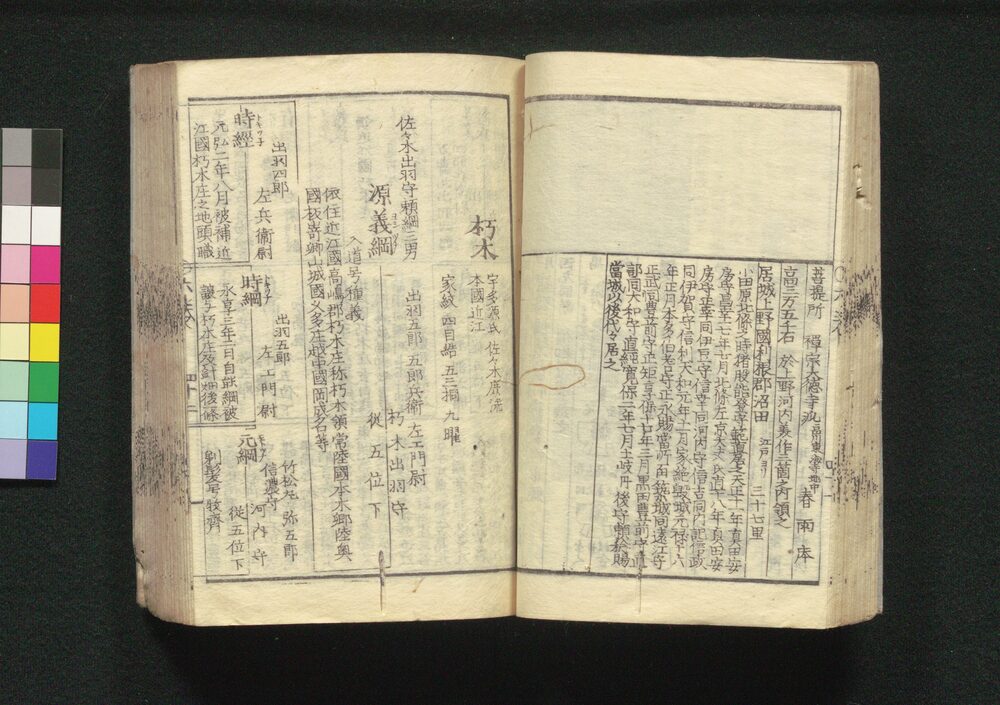 菩提所 禪宗大德寺派 品川東海寺地中 春雨庵
高三万五千石 於上野河内美作三箇之内領之
居城上野國利根郡沼田 江戸ヨリ三十七里
小田原北條之時猪股能登守範直居之天正十一年真田安
房守昌幸十七年七月北條左京大夫氏直十八年真田安
房守正幸同伊豆守信幸同河内守信吉同内記信政
同伊賀守信利天和元年十一月家絶毀城元禄十六
年正月本多伯耆守正永賜當所而築城同遠江守
正武同豊前守正矩享保十七年三月黒田豊前守直
邦同大和守直純寛保二年七月土岐丹後守頼稔賜
當城以後代々居之
朽木
宇多源氏 佐々木庶流
本國近江
家紋 四目結 五三桐 九曜
佐々木出羽守頼綱三男
源義綱
出羽五郎 五郎兵衛 左工門尉
朽木出羽守
従五位下
入道号種義
依住近江國高嶋郡朽木庄称朽木領常陸國本木郷陸奥
國板嵜郷山城國久多庄越中國岡成名等
時經
出羽四郎
左兵衛尉
元弘二年八月被補近
江國朽木庄之地頭職
時綱
出羽五郎
左工門尉
永享三年三月自能綱被
讓与朽木庄及針畑後條
元綱
竹松丸 弥五郎
信濃守 河内守
剃髪号牧齋 従五位下